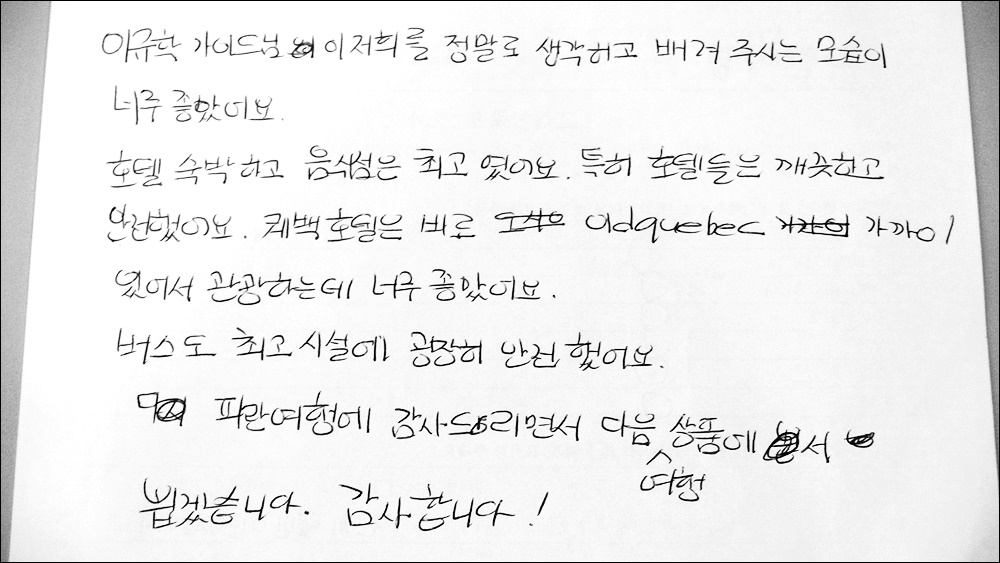 이규학 가이드님이 저희를 정말로 생각하고 배려 주시는 모습이
너무 좋았어요.
호텔 숙박하고 음식점은 최고 였어요. 특히 호텔들은 깨끗하고
안전했어요. 퀘백호텔은 바로 oldquebec 가까이
있어서 관광하는데 너무 좋았어요.
버스도 최고시설에 굉장히 안전했어요.
파란여행에 감사드리면서 다음 상품에서
여행
뵙겠습니다. 감사합니다!